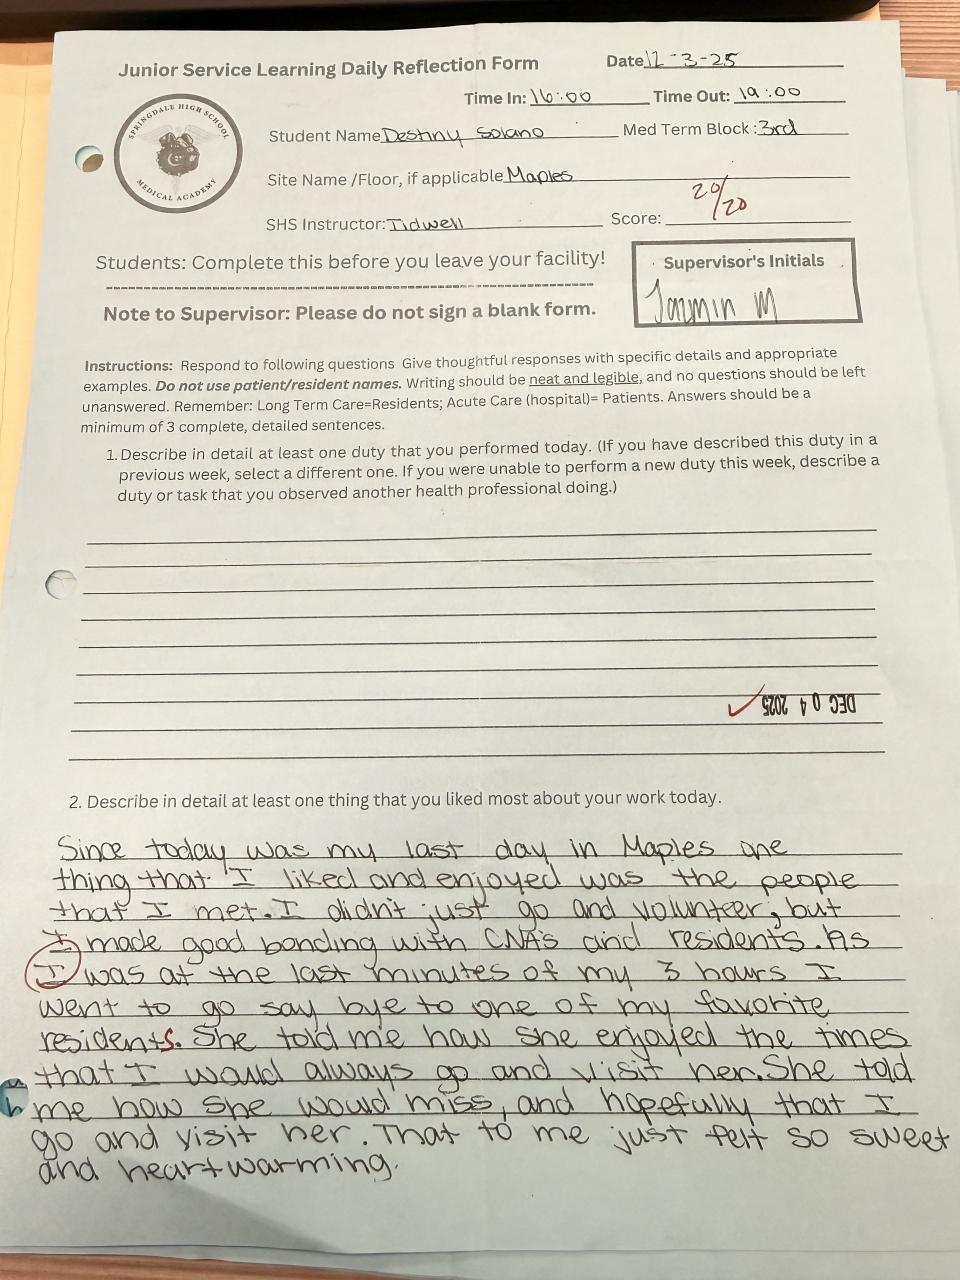 Junior Service Learning Daily Reflection Form
Date 12-3-25
Time In: 16:00 Time Out: 19:00
SPRINGDALE HIGH SCHOOL
MEDICAL ACADEMY
Student Name Destiny Solano Med Term Block: 3rd
Site Name /Floor, if applicable Maples
SHS Instructor: Tidwell Score: 20/20
Students: Complete this before you leave your facility!
Supervisor's Initials
Jazmin M
Note to Supervisor: Please do not sign a blank form.
Instructions: Respond to following questions Give thoughtful responses with specific details and appropriate
examples. Do not use patient/resident names. Writing should be neat and legible, and no questions should be left
unanswered. Remember: Long Term Care=Residents; Acute Care (hospital)= Patients. Answers should be a
minimum of 3 complete, detailed sentences.
1. Describe in detail at least one duty that you performed today. (If you have described this duty in a
previous week, select a different one. If you were unable to perform a new duty this week, describe a
duty or task that you observed another health professional doing.)
DEC 04 2025
2. Describe in detail at least one thing that you liked most about your work today.
Since today was my last day in Maples one
thing that I liked and enjoyed was the people
that I met. I didn't just go and volunteer, but
I made good bonding with CNA's and resident's. As
I was at the last minutes of my 3 hours I
went to go say bye to one of my favorite
residents. She told me how she enjoyed the times
that I would always go and visit her. She told
me how she would miss, and hopefully that I
go and visit her. That to me just felt so sweet
and heartwarming.